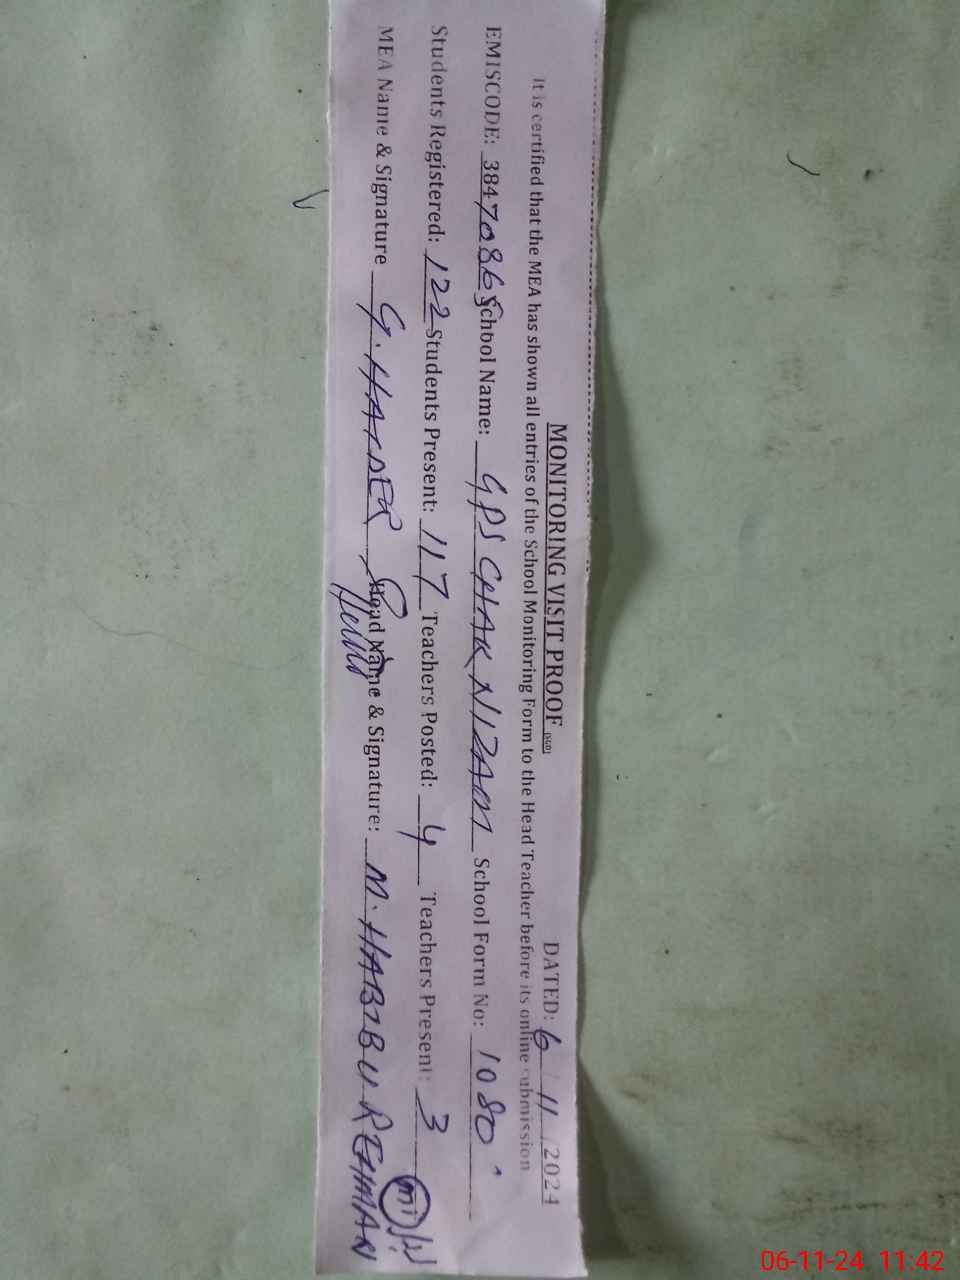 MONITORING VISIT PROOF (SGD) DATED: 6/11/2024
It is certified that the MEA has shown all entries of the School Monitoring Form to the Head Teacher before its online submission
EMISCODE: 38470865 School Name: GPS CHAK NIZAM School Form No: 1080
Students Registered: 122 Students Present: 117 Teachers Posted: 4 Teachers Present: 3
MEA Name & Signature G. HAIDER Head Name & Signature: M. HABIB U. REHMAN
06-11-24 11:42